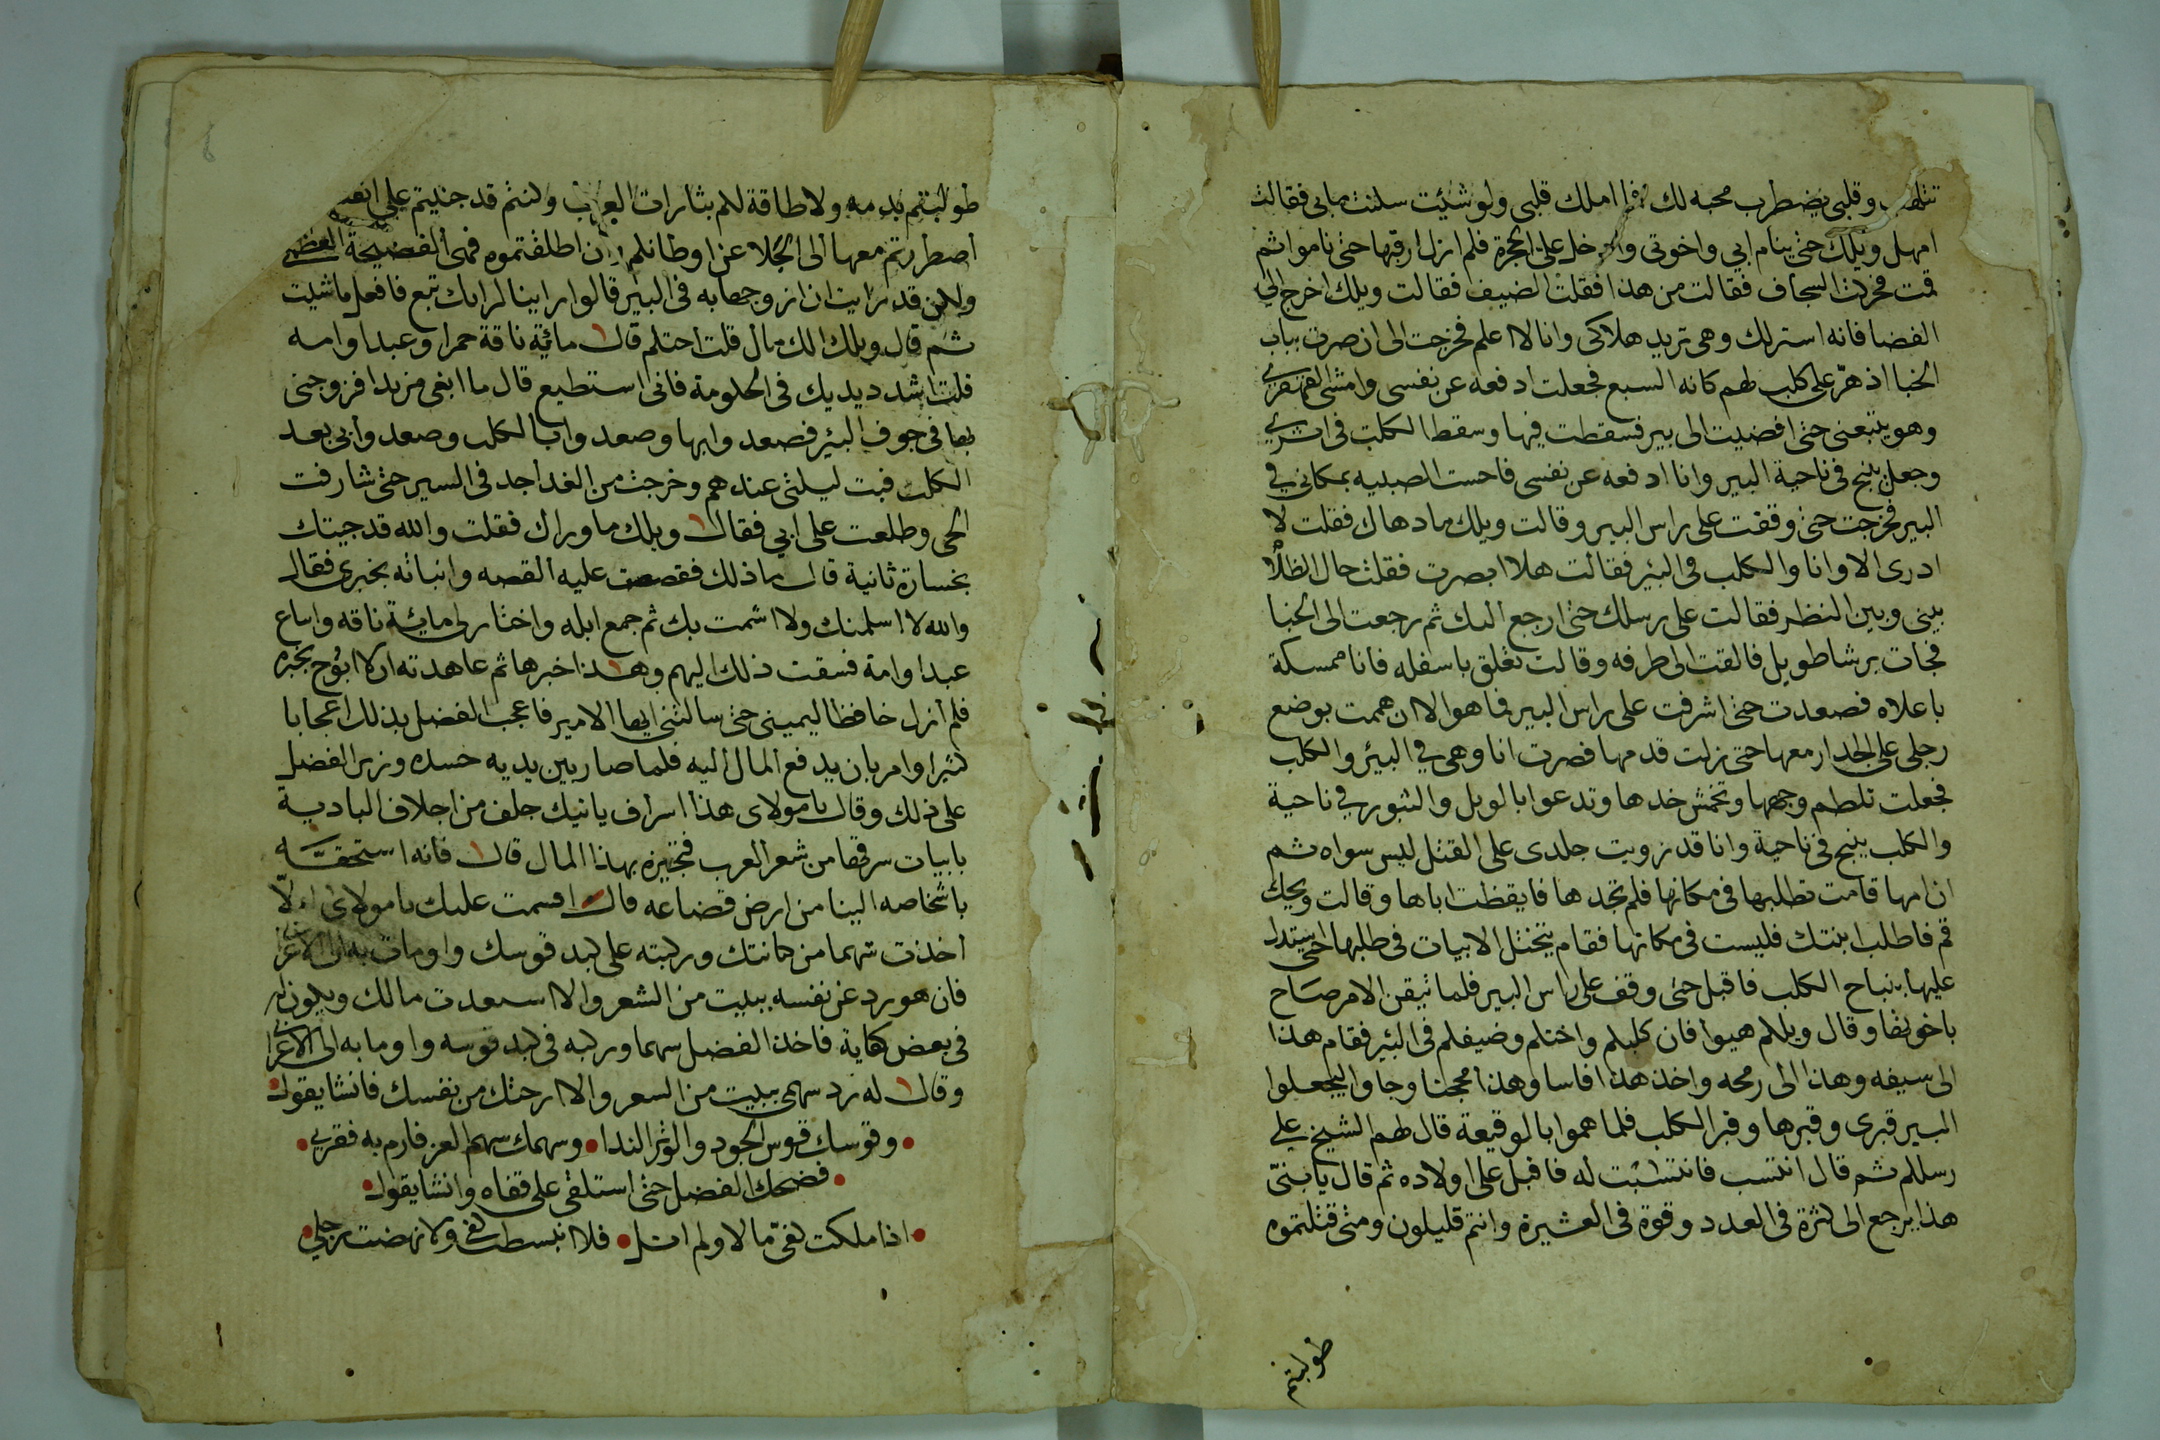 تتلهب وقلبي يضطرب محبه لك فما املك قلبي ولو شئيت سلنت مابى فقالت
امهل ويلك حتى ينام ابي واخوتى وادخل على الحجرة فلم ازل ارقبها حتى ناموا ثم
قمت فحركت السجاف فقالت من هذا فقلت الضيف فقالت ويلك اخرج الي
الفضا فانه استرلك وهى تريد هلاكى وانا لا اعلم فخرجت الى ان صرت بباب
الخبا اذ هرّ على كلب لهم كانه السبع فجعلت ادفعه عن نفسى وامشى القهقرى
وهو يتبعنى حتى افضيت الى بير فسقطت فيها وسقط الكلب فى اثرى
وجعل ينبح فى ناحية البير وانا ادفعه عن نفسى فاحست الصبيه بمكانى في
البير فخرجت حتى وقفت على راس البير وقالت ويلك مادهاك فقلت لا
ادرى الا وانا والكلب فى البئر فقالت هلا ابصرت فقلت حال الظلام
بينى وبين النظر فقالت على رسلك حتى ارجع اليك ثم رجعت الى الخبا
فجات برشا طويل فالقت الى طرفه وقالت تعلق باسفله فانا ممسكة
باعلاه فصعدت حتى اشرفت على راس البير فما هو الا ان هممت بوضع
رجلى على الجدار معها حتى زلت قدمها فصرت انا وهى في البئر والكلب
فجعلت تلطم وجهها وتخمش خدها وتدعوا بالويل والثبور في ناحية
والكلب ينبح فى ناحية وانا قد زويت جلدى على القتل ليس سواه ثم
ان امها قامت تطلبها فى مكانها فلم تجدها فايقظت اباها وقالت ويحك
قم فاطلب ابنتك فليست فى مكانها فقام يتخلل الابيات فى طلبها حتى استدل
عليها بنباح الكلب فاقبل حتى وقف على راس البير فلما تيقن الامر صاح
باخوتها وقال ويلكم هبوا فان كلبكم واختكم وضيفكم فى البئر فقام هذا
الى سيفه وهذا الى رمحه واخذ هذا فاسا وهذا محجنا وجاوا ليجعلوا
البير قبرى وقبرها وقبر الكلب فلما هموا بالوقيعة قال لهم الشيخ على
رسلكم ثم قال انتسب فانتسبت له فاقبل على اولاده ثم قال يا بنىّ
هذا يرجع الى كثرة فى العدد وقوة فى العشيرة وانتم قليلون ومتى قتلتموه
طولبتم
طولبتم بدمه ولا طاقة لكم بثارات العرب وكنتم قد جنيتم على انفس
اضطررتم معها الى الجلا عن اوطانكم وان اطلقتموه فهى الفضيحة العظمى
ولكن قد رايت ان ازوجها به فى البير قالوا راينا لرايك تبع فافعل ما شيت
ثم قال ويلك الك مال قلت احتكم قال مائة ناقة حمرا وعبد وامه
قلت اشدد يديك فى الحكومة فانى استطيع قال ما ابغى مزيدا فزوجنى
بها فى جوف البئر فصعد وابها وصعدوا بالكلب وصعدوا بى بعد
الكلب فبت ليلتى عندهم وخرجت من الغد اجد فى السير حتى شارفت
الحى وطلعت على ابى فقال ويلك ما وراك فقلت والله قد جيتك
بخسارة ثانية قال ما ذلك فقصصت عليه القصه وانباته بخبرى فقال
والله لا اسلمنك ولا اشمت بك ثم جمع ابله واختار لى مائة ناقه وابتاع
عبدا وامة فسقت ذلك اليهم وهذا خبرها ثم عاهدته ان لا ابوح بخبره
فلم ازل حافظا ليمينى حتى سالتنى ايها الامير فاعجب الفضل بذلك اعجابا
كثيرا وامر بان يدفع المال اليه فلما صار بين يديه حسده وزير الفضل
على ذلك وقال يا مولاى هذا اسراف ياتيك جلف من اجلاف البادية
بابيات سرقها من شعر العرب فتجيزه بهذا المال قال فانه استحقه
باشخاصه الينا من ارض قضاعه قال اقسمت عليك يا مولاى الّا
اخذت سهما من كنانتك وركبته على كبد قوسك واومات به الى الاعرا
فان هو رد عن نفسه ببيت من الشعر والا استعدت مالك ويكون له
فى بعض كفاية فاخذ الفضل سهما وركبه فى كبد قوسه واوما به الى الاعرا
وقال له رد سهمى ببيت من الشعر والا ارحتك من نفسك فانشا يقول
وقوسك قوس الجود والوتر الندا وسهمك سهم العز فارم به فقرى
فضحك الفضل حتى استلقى على قفاه وانشا يقول
اذا ملكت كفى مالا ولم انل فلا انبسطت كفى ولا نهضت رجلى